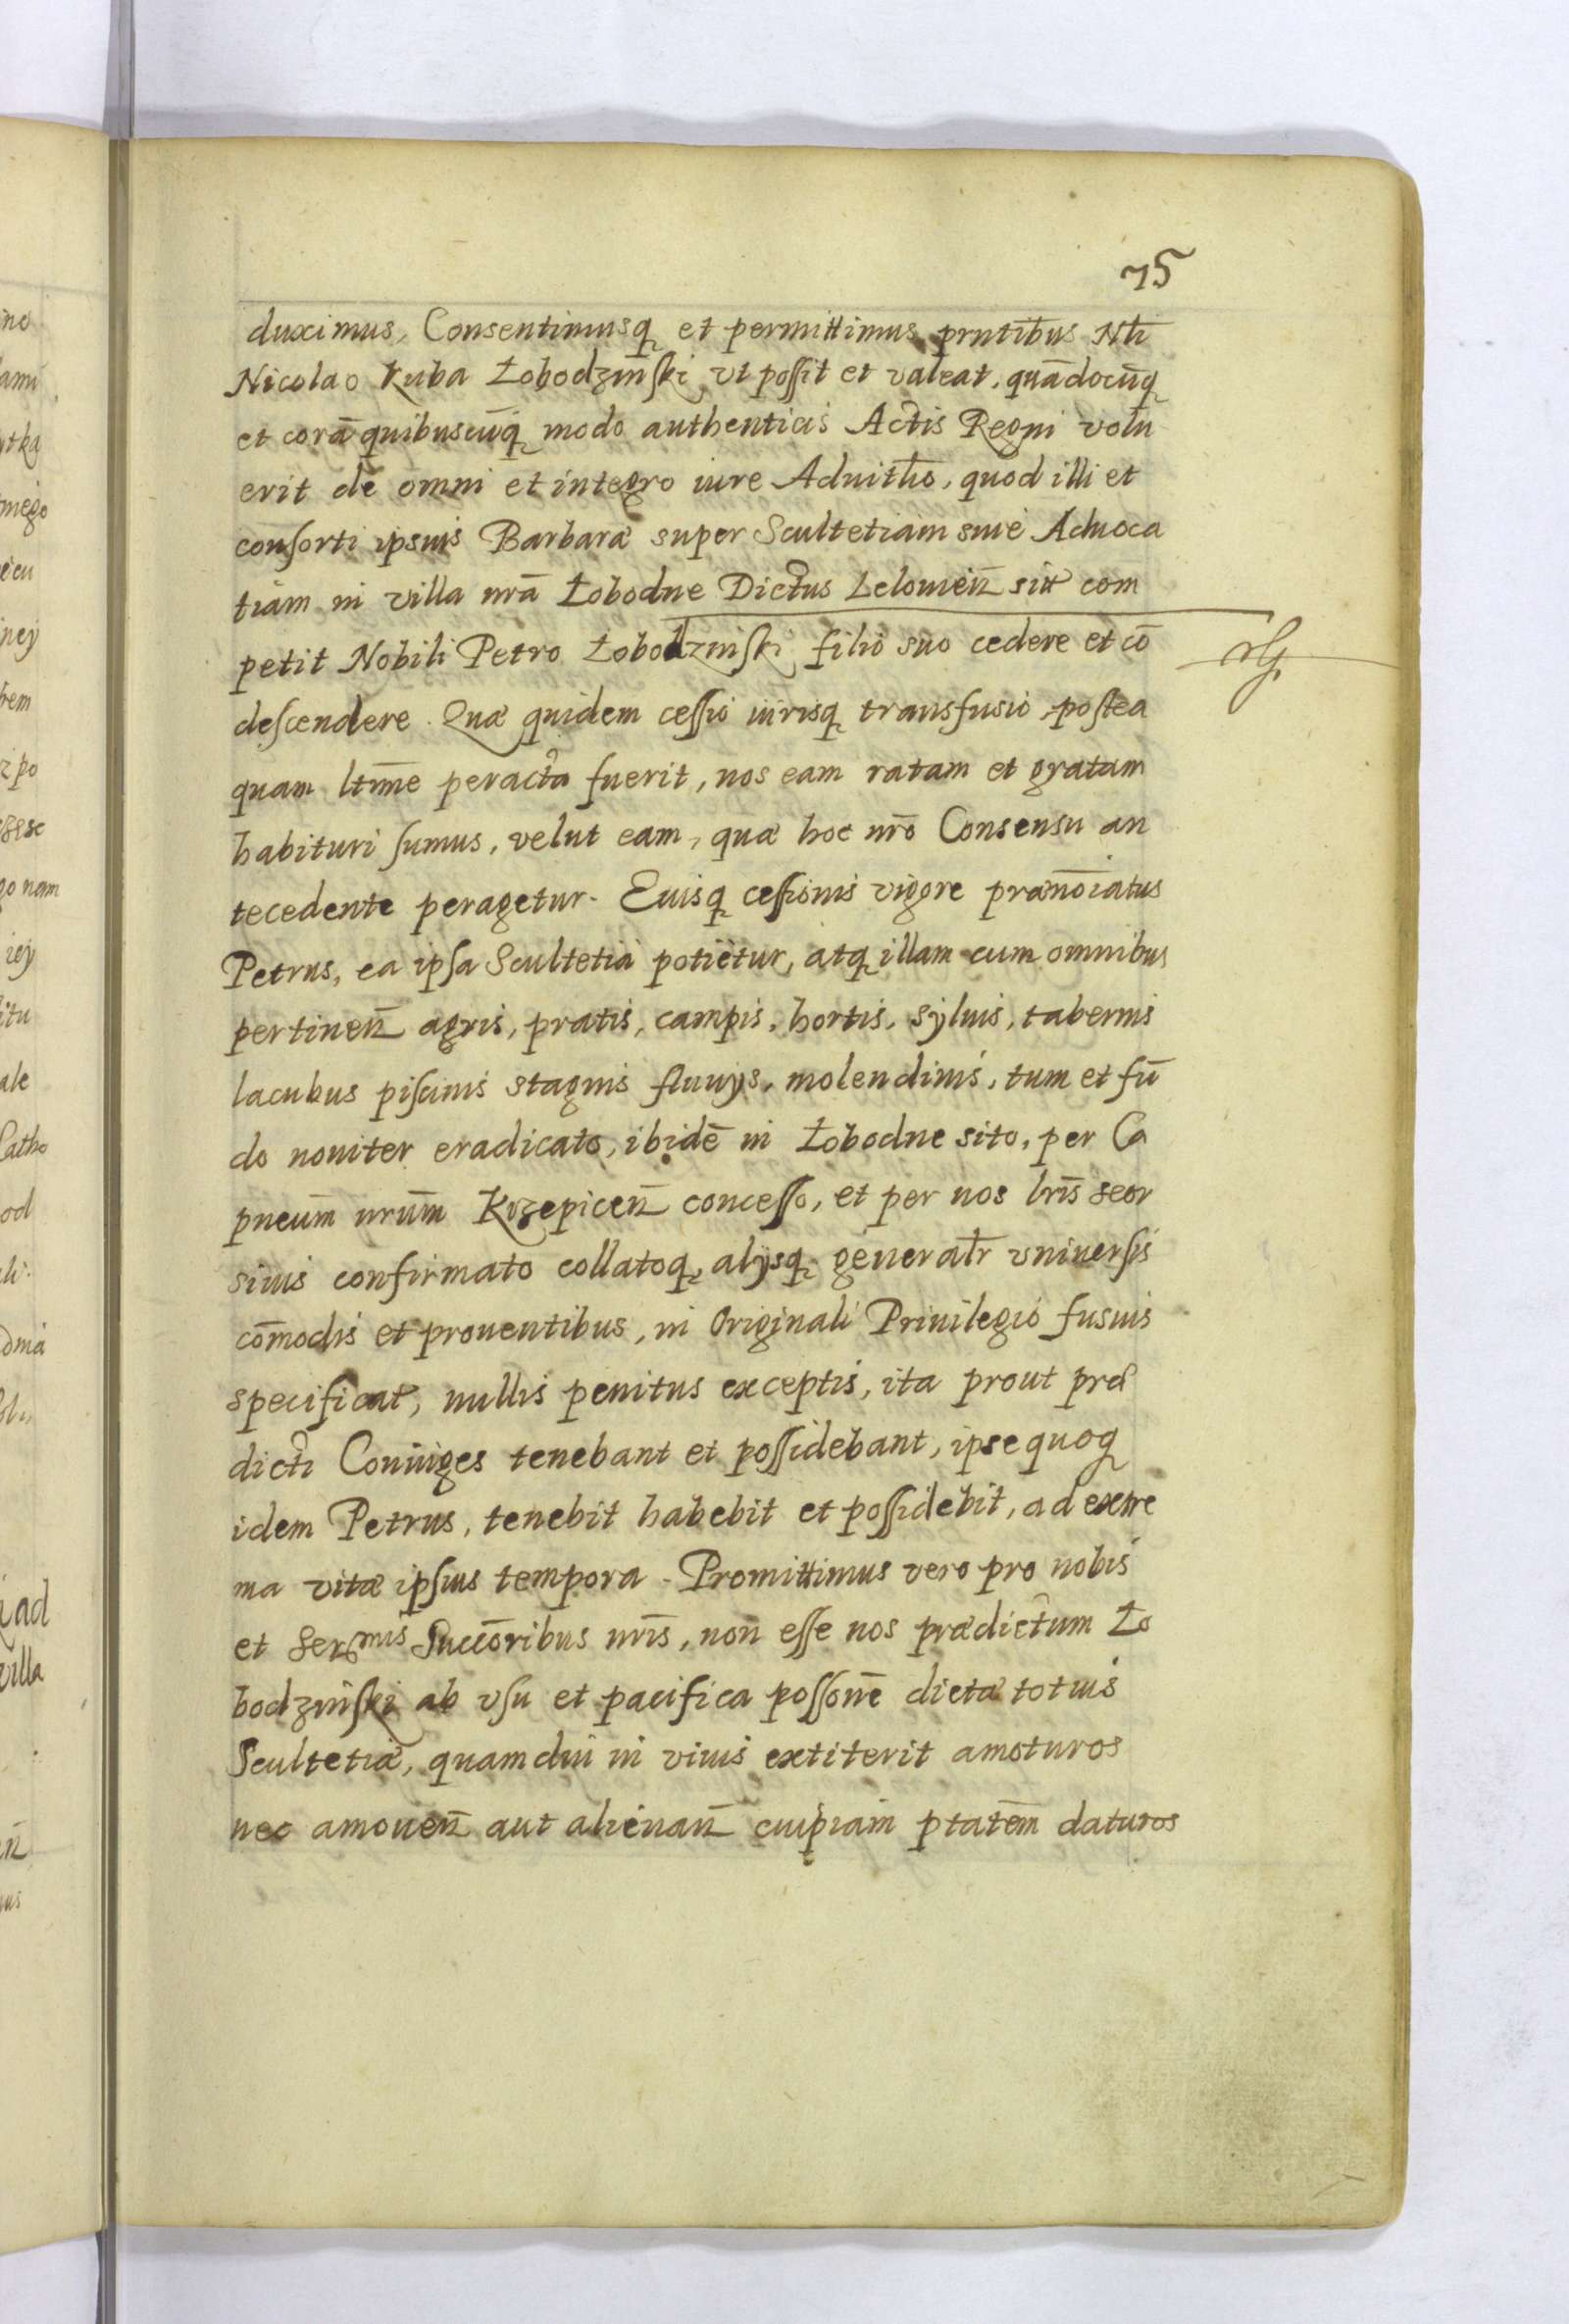 75
duximus, Consentimusq̨ et permittimus prntibus Nli
Nicolao Kuba Łobodzinski vt possit et valeat, quādocūq̨
et corā quibuscūq̨ modo authenticis Actis Regni volu
erit de omni et integro iure Aduitio, quod illi et
consorti ipsius Barbaræ super Scultetiam siue Aduoca
tiam in villa nrā Łobodne Dictus Lelowień sitt com
petit Nobili Petro Łobodzinski filio suo cedere et cō
descendere. Quæ quidem cessio iurisq̨ transfusio postea
quam ltmē peracta fuerit, nos eam ratam et gratam
habituri sumus, velut eam, quæ hoc nrō Consensu an
tecedente peragetur. Euisq̨ cessionis vigore prænōiatus
Petrus, ea ipsa Scultetia potietur, atq̨ illam cum omnibus
pertineñ agris, pratis, campis, hortis, syluis, tabernis
lacubus piscinis stagnis fluuys, molendinis, tum et fū
do nouiter eradicato, ibidē in Łobodne sito, per Ca
pneūm nrūm Krzepiceñ concesso, et per nos lrīs seor
siuis confirmato collatoq̨, alysq̨ generatr̄ vniuersis
cōmodis et prouentibus, in Originali Priuilegio fusius
specificat, nullis penitus exceptis, ita prout præ
dicti Coniuges tenebant et possidebant, ipse quoq̨
idem Petrus, tenebit habebit et possidebit, ad extre
ma vitæ ipsius tempora. Promittimus vero pro nobis
et Sermis Succōribus nrīs, non esse nos prædictum Ło
bodzinski ab vsu et pacifica possonē dictæ totius
Scultetiæ, quamdiu in viuis extiterit amoturos
nec amoueñ aut alienañ cuipiam ptatēm daturos